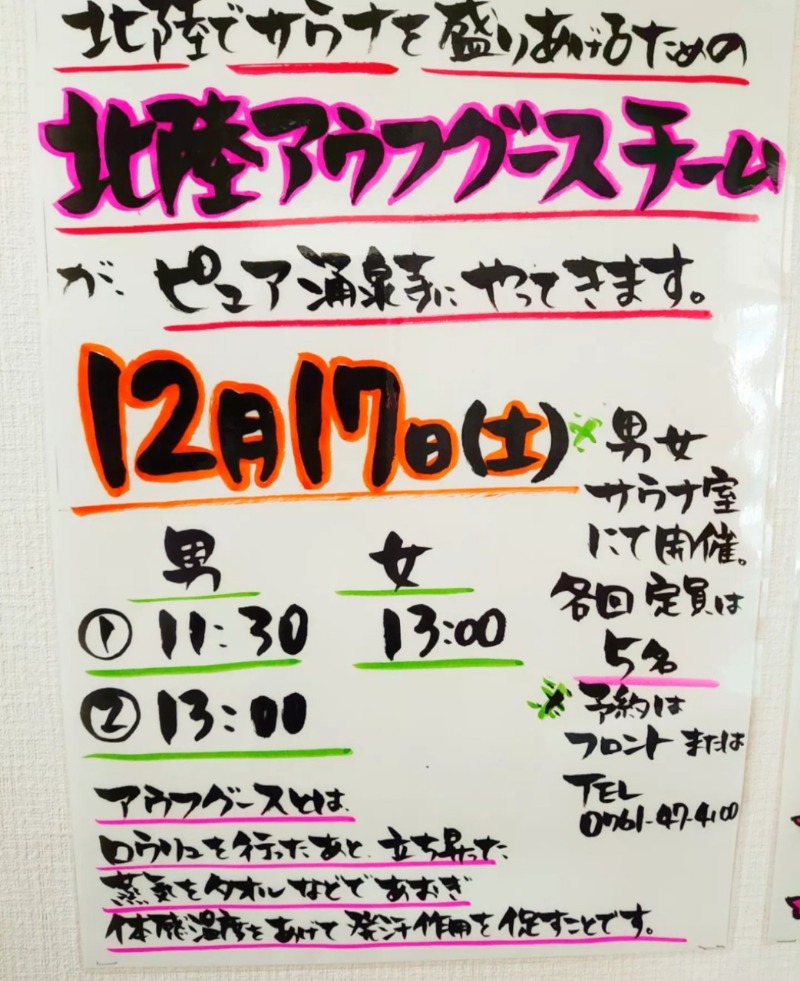 北陸でサウナを盛りあげるための
北陸アウフグースチーム
が、ピュア涌泉寺にやってきます。
12月17日(土)
男 女
① 11:30 13:00
② 13:00
※男女
サウナ室
にて開催。
各回定員は
5名
※予約は
フロントまたは
TEL
0761-47-4100
アウフグースとは
ロウリュを行ったあと、立ち昇った
蒸気をタオルなどであおぎ
体感温度をあげて発汗作用を促すことです。